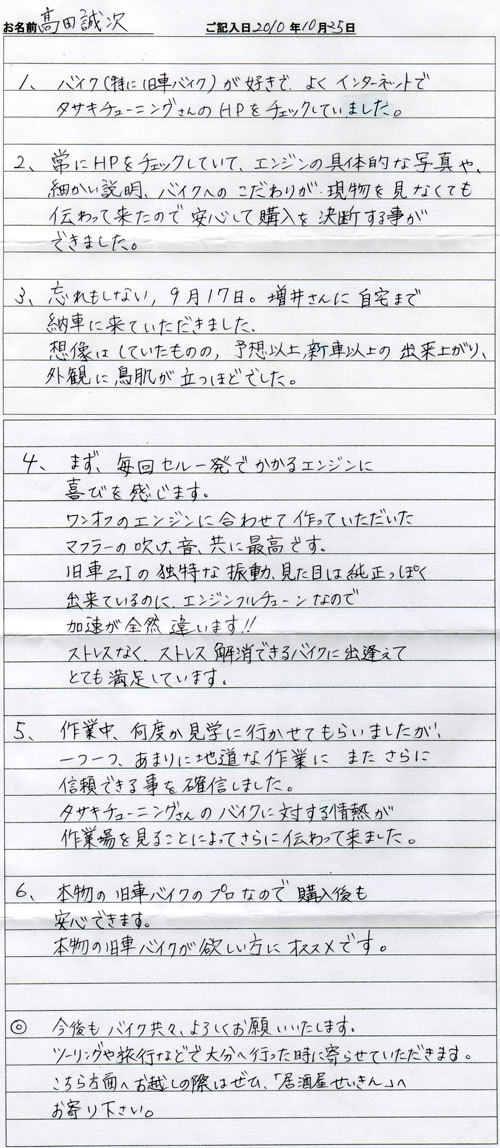 お名前 髙田誠次 ご記入日2010年10月25日
1、バイク(特に旧車バイク)が好きで、よくインターネットで
タサキチューニングさんのHPをチェックしていました。
2、常にHPをチェックしていて、エンジンの具体的な写真や、
細かい説明、バイクへのこだわりが現物を見なくても
伝わって来たので安心して購入を決断する事が
できました。
3、忘れもしない、9月17日。増井さんに自宅まで
納車に来ていただきました。
想像はしていたものの、予想以上、新車以上の出来上がり、
外観に鳥肌が立つほどでした。
4、まず、毎回セル一発でかかるエンジンに
喜びを感じます。
ワンオフのエンジンに合わせて作っていただいた
マフラーの吹け、音、共に最高です。
旧車ZIの独特な振動、見た目は純正っぽく
出来ているのに、エンジンフルチューンなので
加速が全然違います!!
ストレスなく、ストレス解消できるバイクに出逢えて
とても満足しています。
5、作業中、何度か見学に行かせてもらいましたが、
一つ一つ、あまりに地道な作業に またさらに
信頼できる事を確信しました。
タサキチューニングさんのバイクに対する情熱が
作業場を見ることによってさらに伝わって来ました。
6、本物の旧車バイクのプロなので購入後も
安心できます。
本物の旧車バイクが欲しい方にオススメです。
◎ 今後もバイク共々、よろしくお願いいたします。
ツーリングや旅行などで大分へ行った時に寄らせていただきます。
こちら方面へお越しの際はぜひ、「居酒屋せいきん」へ
お寄り下さい。